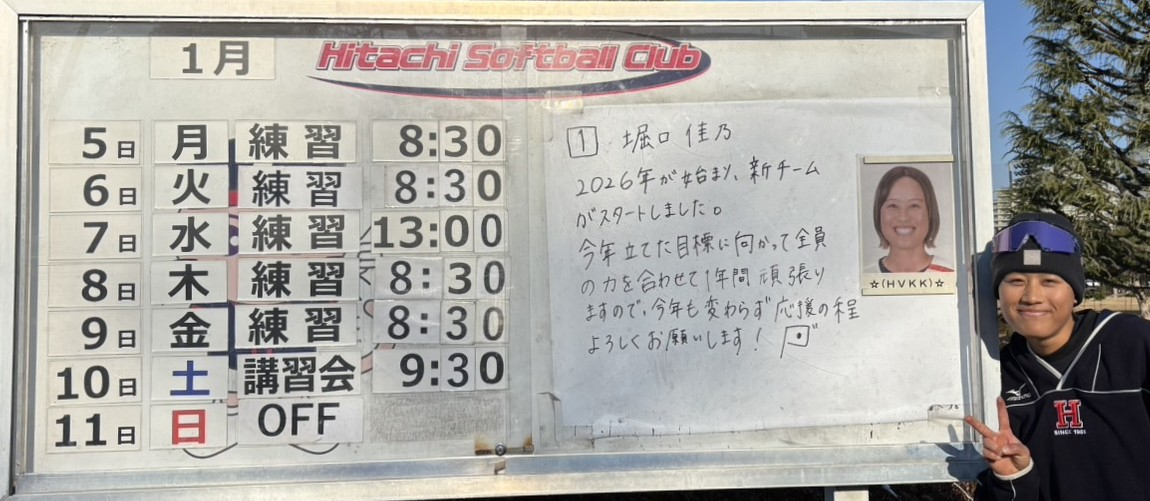 1月
Hitachi Softball Club
5日 月 練習 8:30
6日 火 練習 8:30
7日 水 練習 13:00
8日 木 練習 8:30
9日 金 練習 8:30
10日 土 講習会 9:30
11日 日 OFF
1 堀口 佳乃
2026年が始まり、新チーム
がスタートしました。
今年立てた目標に向かって全員
の力を合わせて1年間頑張り
ますので、今年も変わらず応援の程
よろしくお願いします!
☆(HVKK)☆
H
SINCE 1981